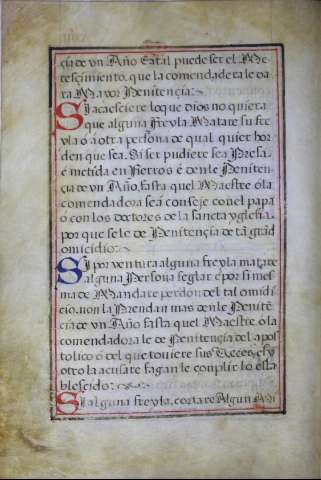 çia de vn Año E a tal puede ser el Me
resçimiento, que la comendadera le da
rá Mayor Penitençia:
Si acaesçiere lo que Dios no quiera
que alguna Freyla Matare su fre
yla ó á otra persona de qual quier hor
den que sea. Si ser pudiere sea Presa,
é metida en Fierros é denle Peniten
çia de vn Año, fasta quel Maestre ó la
comendadora sea conseje con el papa
ó con los doctores de la sancta yglesia
por que se le de Penitençia de tã grad
omiçidio:
Si por ventura alguna freyla matare
alguna Persona seglar é por si mes
ma de Mandare perdon del tal omidi
çio, non la Prendan mas denle Penitẽ
çia de vn Año fasta quel Maestre ó la
comendadora le de Penitençia del apos
tolico é del que touiere sus Vezes, é sy
otro la acusare fagan le complir lo esta
blesçido:
Si alguna freyla, cortare Algun Mi